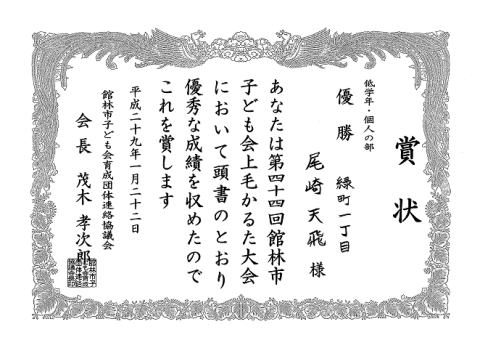 賞状
低学年・個人の部
優勝 緑町一丁目
尾崎天飛様
あなたは第四十四回館林市
子ども会上毛かるた大会
において頭書のとおり
優秀な成績を収めたので
これを賞します
平成二十九年一月二十二日
館林市子ども会育成団体連絡協議会
会長 茂木孝次郎